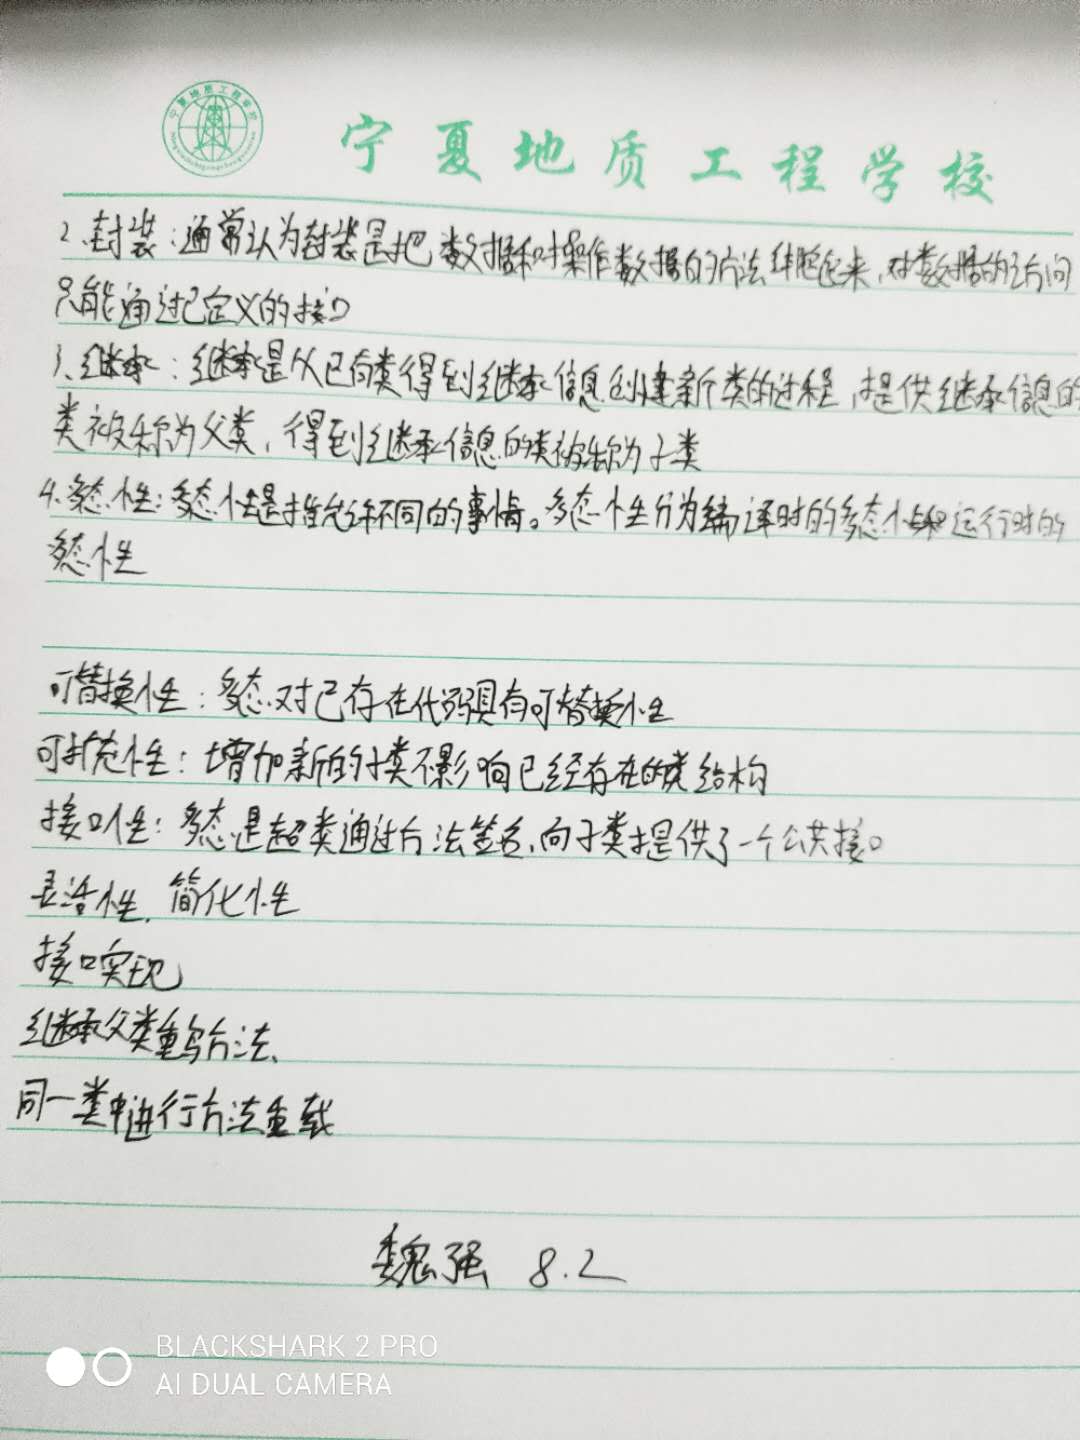 宁夏地质工程学校
2.封装:通常认为封装是把数据和对操作数据的方法绑起来,对数据的访问
只能通过已定义的接口
3、继承:继承是从已有类得到继承信息创建新类的过程,提供继承信息的
类被称为父类,得到继承信息的类被称为子类
4.多态性:多态性是指允许不同的事情。多态性分为编译时的多态性和运行时的
多态性
可替换性:多态对已存在代码具有可替换性
可扩充性:增加新的子类不影响已经存在的类结构
接口性:多态是超类通过方法签名,向子类提供了一个公共接口
灵活性,简化性
接口实现
继承父类重写方法、
同一类中进行方法重载
魏强 8.2
BLACKSHARK 2 PRO
AI DUAL CAMERA